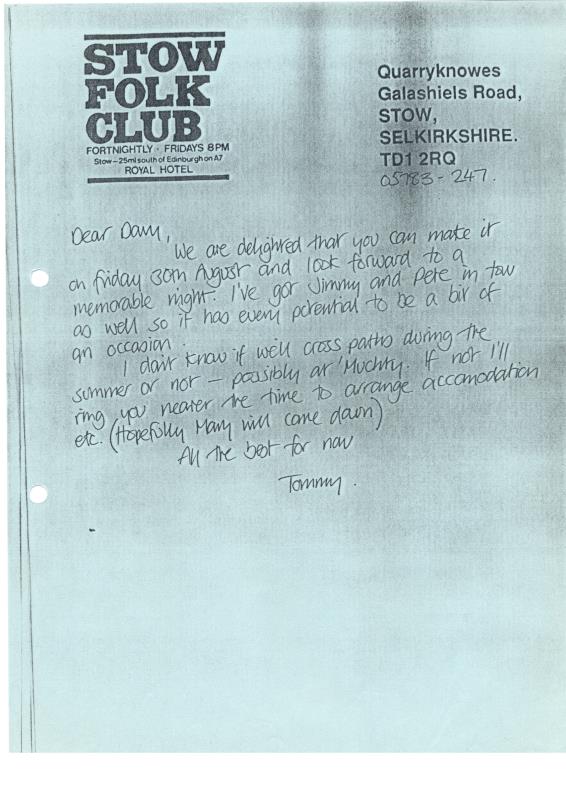 STOW
FOLK
CLUB
FORTNIGHTLY · FRIDAYS 8PM
Stow – 25ml south of Edinburgh on A7
ROYAL HOTEL
Quarryknowes
Galashiels Road,
STOW,
SELKIRKSHIRE.
TD1 2RQ
05783-247.
Dear Davy,
We are delighted that you can make it
on friday 30th August and look forward to a
memorable night. I've got Jimmy and Pete in tow
as well so it has every potential to be a bit of
an occasion.
I don't know if we'll cross paths during the
summer or not – possibly at 'Muchty. If not I'll
ring you nearer the time to arrange accomodation
etc. (Hopefully Mary will come down)
All the best for now
Tommy.